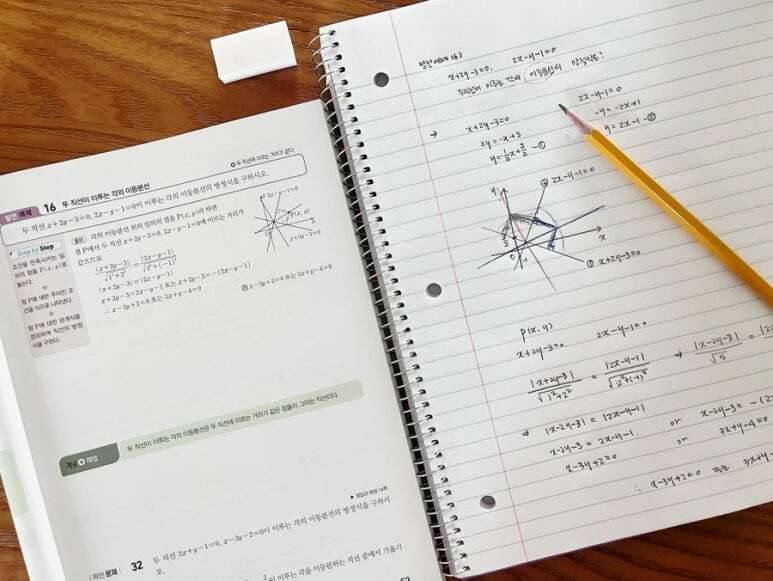 두 직선에 이르는 거리가 같다
발전 예제 16 두 직선이 이루는 각의 이등분선
두 직선 x+2y-3=0, 2x-y-1=0이 이루는 각의 이등분선의 방정식을 구하시오.
Step by Step
조건을 만족시키는 임
의의 점을 P(x, y)로
놓는다.
점 P에 대한 주어진 조
건을 식으로 나타낸다.
점 P에 대한 관계식을
정리하여 직선의 방정
식을 구한다.
풀이 각의 이등분선 위의 임의의 점을 P(x, y)라 하면
점 P에서 두 직선 x+2y-3=0, 2x-y-1=0에 이르는 거리가
같으므로
|x+2y-3|/√(1²+2²) = |2x-y-1|/√(2²+(-1)²)
|x+2y-3|=|2x-y-1|
x+2y-3=2x-y-1 또는 x+2y-3=-(2x-y-1)
∴ x-3y+2=0 또는 3x+y-4=0
답 x-3y+2=0 또는 3x+y-4=0
2x-y-1=0
P(x, y)
x+2y-3=0
개념+해법 두 직선이 이루는 각의 이등분선은 두 직선에 이르는 거리가 같은 점들이 그리는 직선이다.
확인 문제 32 두 직선 3x+y-1=0, x-3y-2=0이 이루는 각의 이등분선의 방정식을 구하시
이 이루는 각을 이등분하는 직선 중에서 기울기
발전 예제 16)
x+2y-3=0, 2x-y-1=0
두직선이 이루는 각의 이등분선의 방정식은?
→ x+2y-3=0
2y=-x+3
①
2x-y-1=0
-y=-2x+1
y=2x-1 -②
y
② 2x-y-1=0
x
① x+2y-3=0
P(x,y)
x+2y-3=0 2x-y-1=0
|x+2y-3|/√(1²+2²) = |2x-y-1|/√(2²+(-1)²) ⇒ |x-2y-3|/√5 =
⇒ |x-2y-3| = |2x-y-1|
x-2y-3=2x-y-1 or x-2y-3=-(2
x-3y+2=0 or 3x+y-4=0
∴ x-3y+2=0 또는 3x+y-